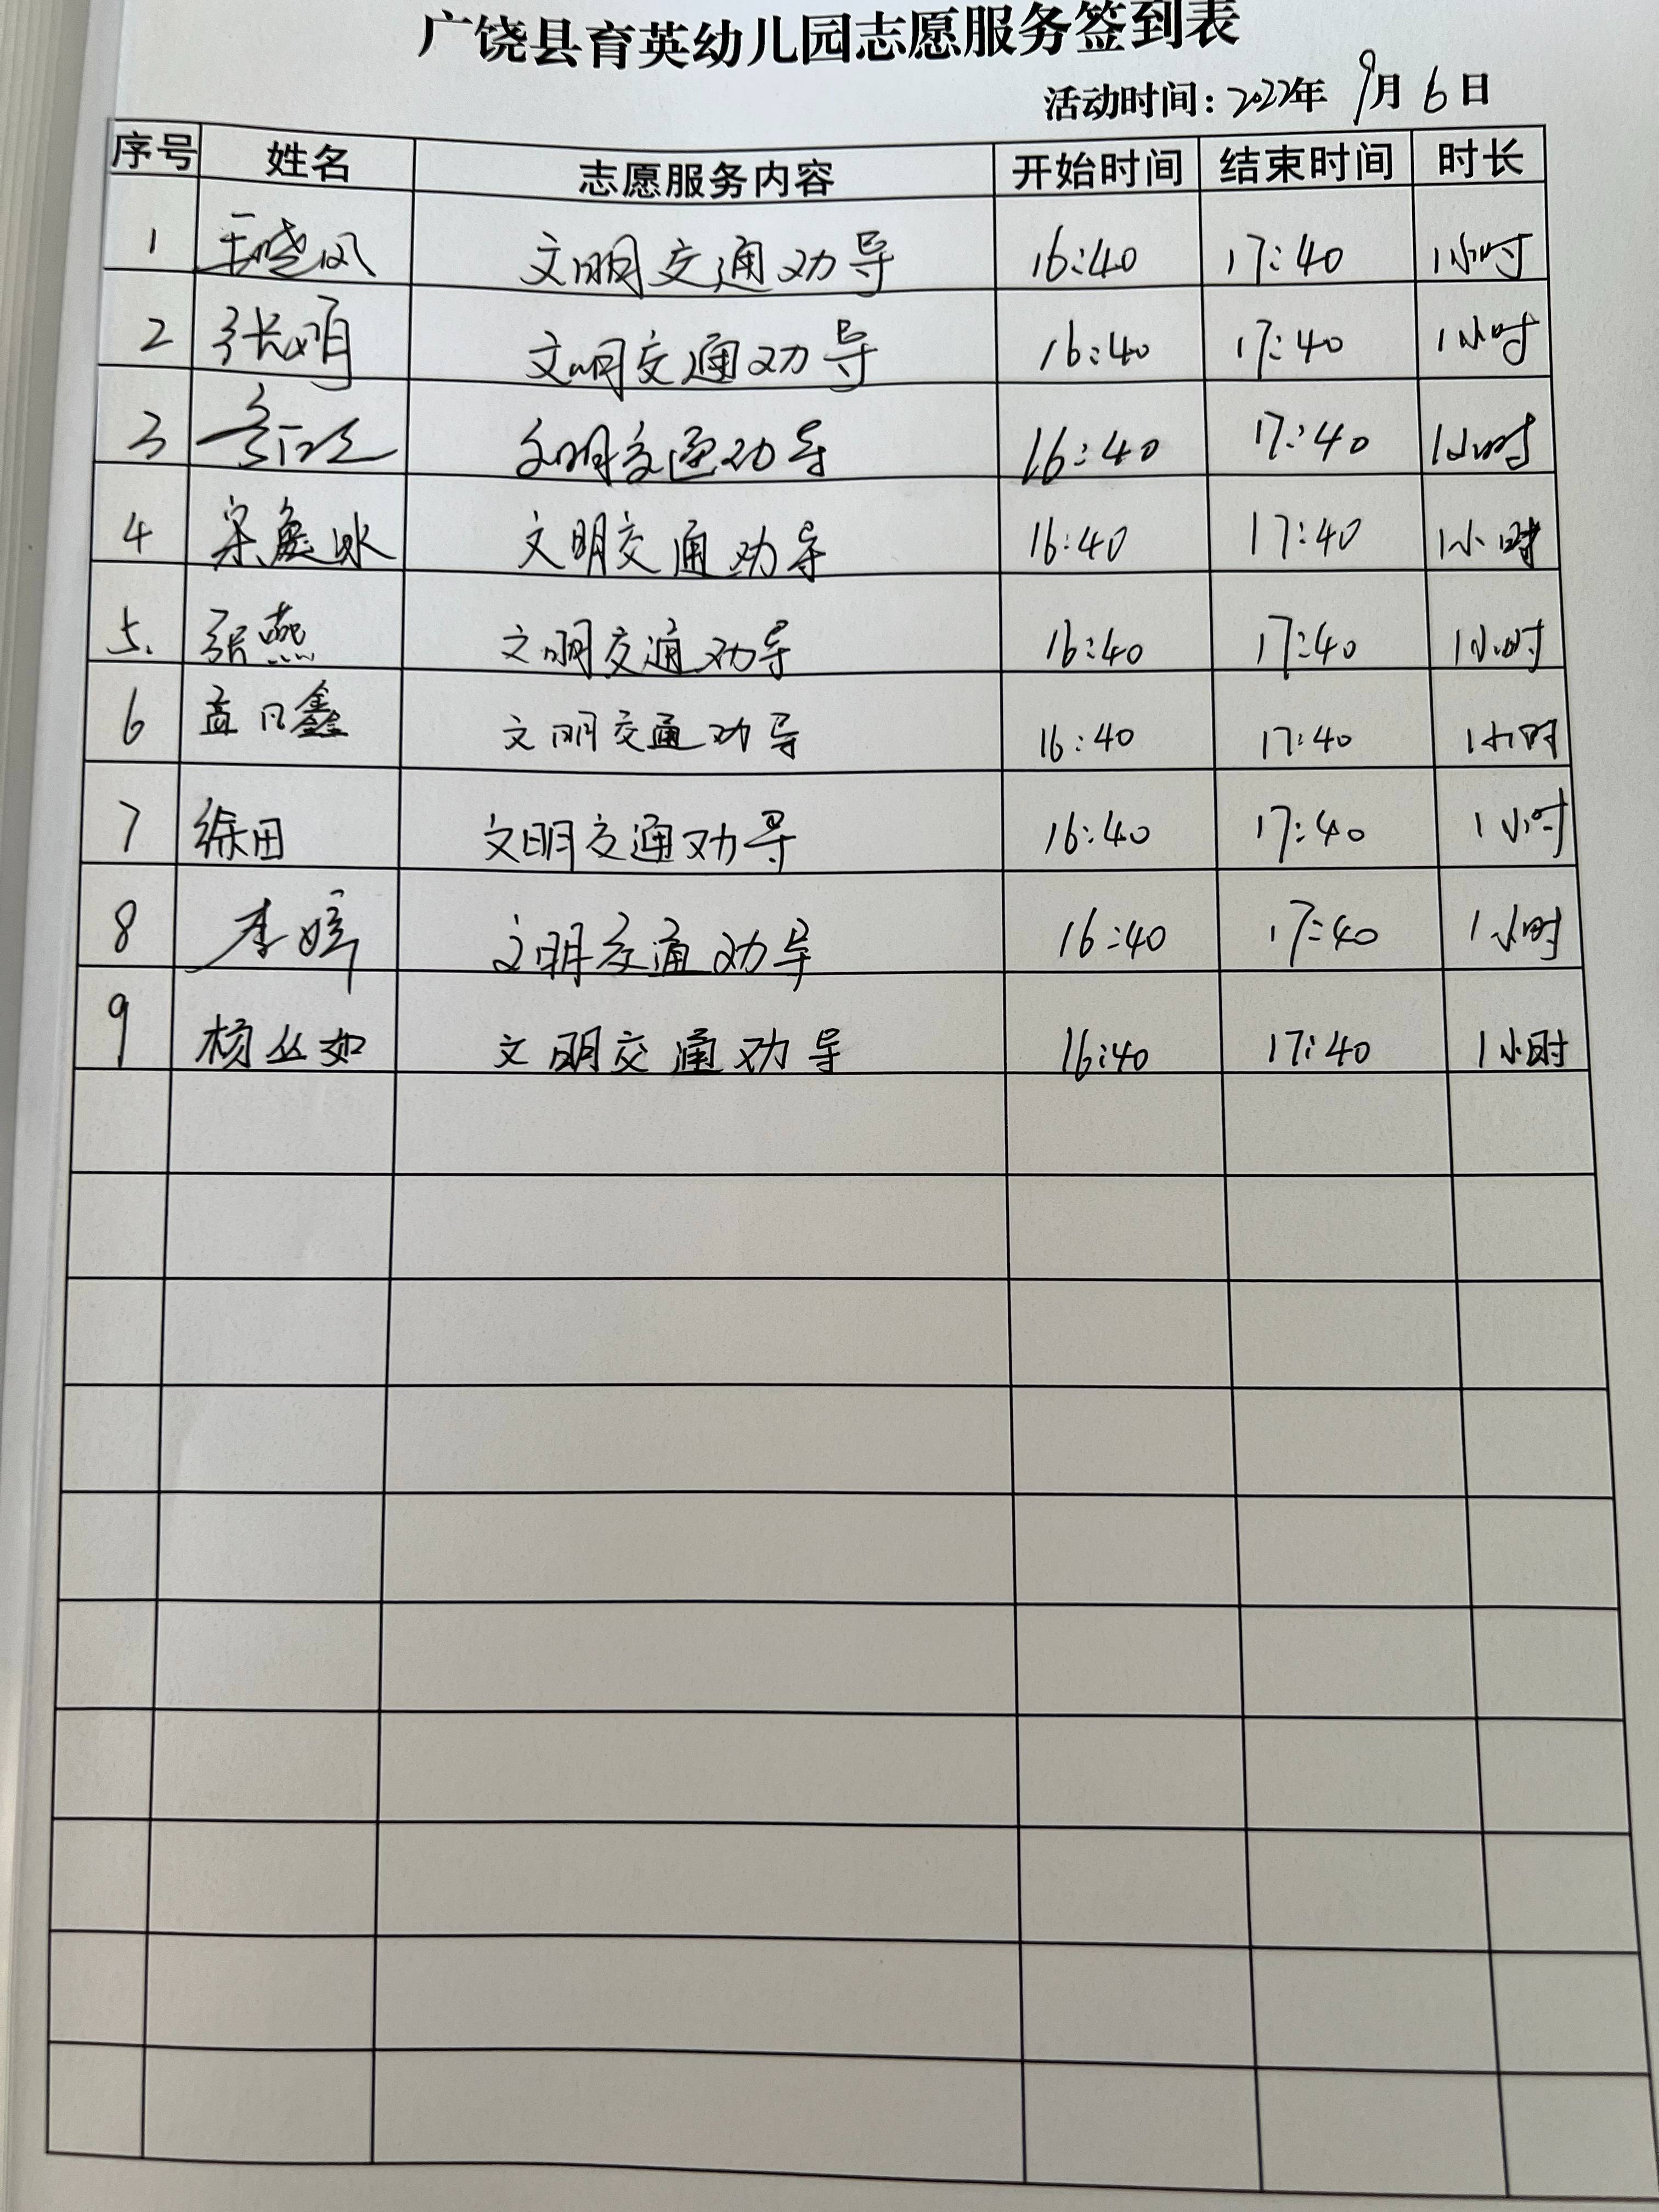 广饶县育英幼儿园志愿服务签到表
活动时间：2022年 9月 6日
序号 姓名 志愿服务内容 开始时间 结束时间 时长
1 王晓风 文明交通劝导 16:40 17:40 1小时
2 张娟 文明交通劝导 16:40 17:40 1小时
3 文明交通劝导 16:40 17:40 1小时
4 文明交通劝导 16:40 17:40 1小时
5. 张燕 文明交通劝导 16:40 17:40 1小时
6 孟凡鑫 文明交通劝导 16:40 17:40 1小时
7 徐田 文明交通劝导 16:40 17:40 1小时
8 李婷 文明交通劝导 16:40 17:40 1小时
9 杨丛如 文明交通劝导 16:40 17:40 1小时